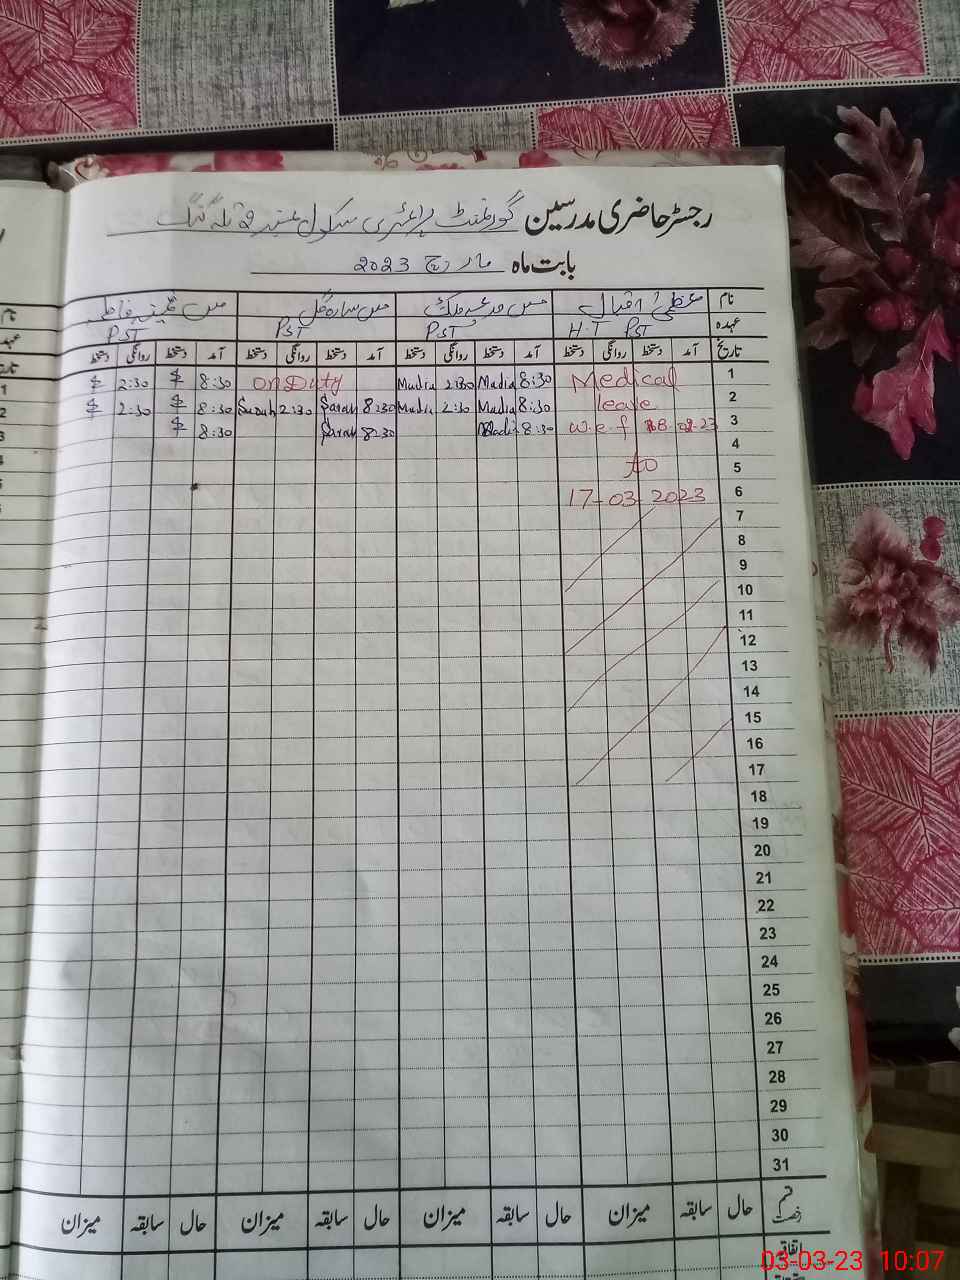 رجسٹر حاضری مدرسین گورنمنٹ پرائمری سکول تلہ گنگ
بابت ماہ مارچ 2023
نام عظمیٰ اقبال مس مس سارہ گل مس فاطمہ
عہدہ H.T PST PST PST PST
تاریخ آمد دستخط روانگی دستخط آمد دستخط روانگی دستخط آمد دستخط روانگی دستخط آمد دستخط روانگی دستخط
1 Medical 8:30 Madia 2:30 Madia on Duty 8:30 2:30
2 leave 8:30 Madia 2:30 Madia 8:30 Sarah 2:30 Sarah 8:30 2:30
3 w.e.f 8:30 Madia 8:30 Sarah 8:30
4
5 to
6 17-03-2023
7
8
9
10
11
12
13
14
15
16
17
18
19
20
21
22
23
24
25
26
27
28
29
30
31
قسم رخصت حال سابقہ میزان حال سابقہ میزان حال سابقہ میزان حال سابقہ میزان
اتفاقیہ
03-03-23 10:07